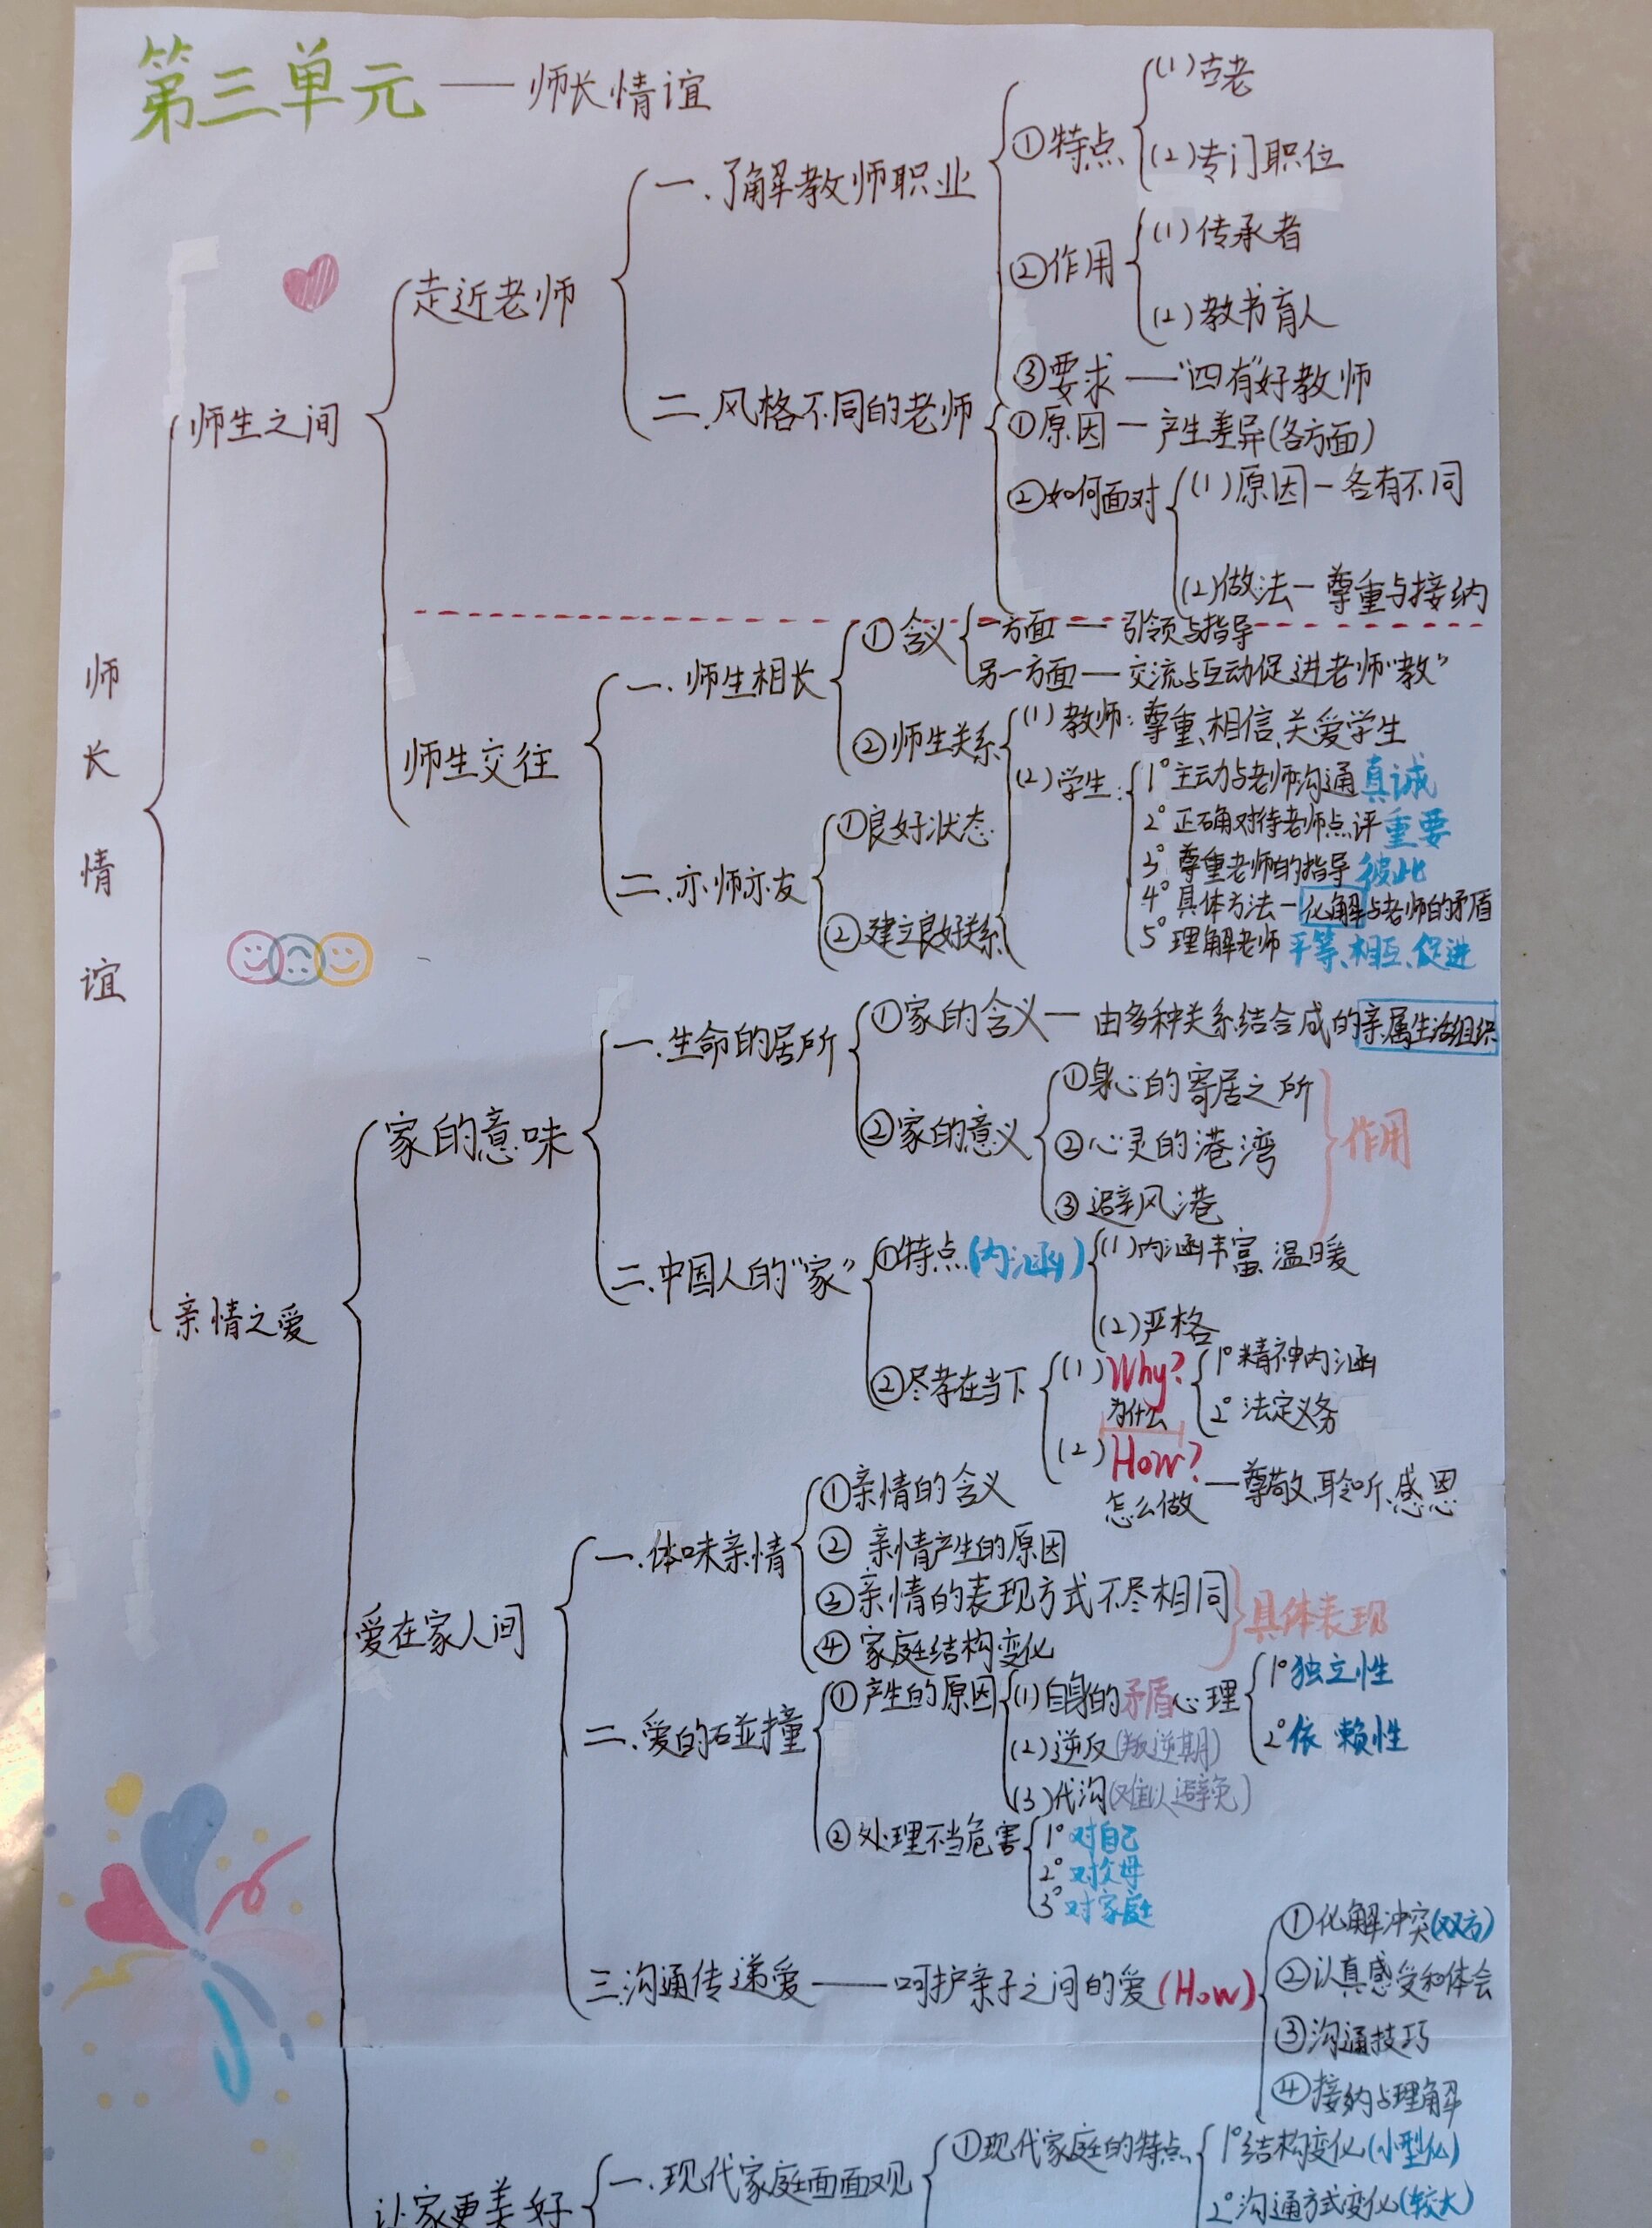 第三单元——师长情谊
师长情谊
师生之间
走近老师
一.了解教师职业
①特点
(1)古老
(2)专门职位
②作用
(1)传承者
(2)教书育人
③要求——“四有”好教师
二.风格不同的老师
①原因—产生差异(各方面)
②如何面对
(1)原因—各有不同
(2)做法—尊重与接纳
师生交往
一.师生相长
①含义
一方面——引领与指导
另一方面——交流与互动促进老师“教”
②师生关系
二.亦师亦友
①良好状态
②建立良好关系
(1)教师:尊重、相信、关爱学生
(2)学生:
1°主动与老师沟通 真诚
2°正确对待老师点评 重要
3°尊重老师的指导 彼此
4°具体方法—化解与老师的矛盾
5°理解老师 平等、相互、促进
亲情之爱
家的意味
一.生命的居所
①家的含义—由多种关系结合成的亲属生活组织
②家的意义
①身心的寄居之所
②心灵的港湾
③避风港
作用
二.中国人的“家”
①特点(内涵)
(1)内涵丰富、温暖
(2)严格
②尽孝在当下
(1)Why?
为什么
1°精神内涵
2°法定义务
(2)How?
怎么做
—尊敬、聆听、感恩
爱在家人间
一.体味亲情
①亲情的含义
②亲情产生的原因
③亲情的表现方式不尽相同
④家庭结构变化
具体表现
二.爱的碰撞
①产生的原因
(1)自身的矛盾心理
1°独立性
2°依赖性
(2)逆反(叛逆期)
(3)代沟(难以避免)
②处理不当危害
1°对自己
2°对父母
3°对家庭
三.沟通传递爱——呵护亲子之间的爱(How)
①化解冲突(双方)
②认真感受和体会
③沟通技巧
④接纳与理解
让家更美好
一.现代家庭面面观
①现代家庭的特点
1°结构变化(小型化)
2°沟通方式变化(较大)